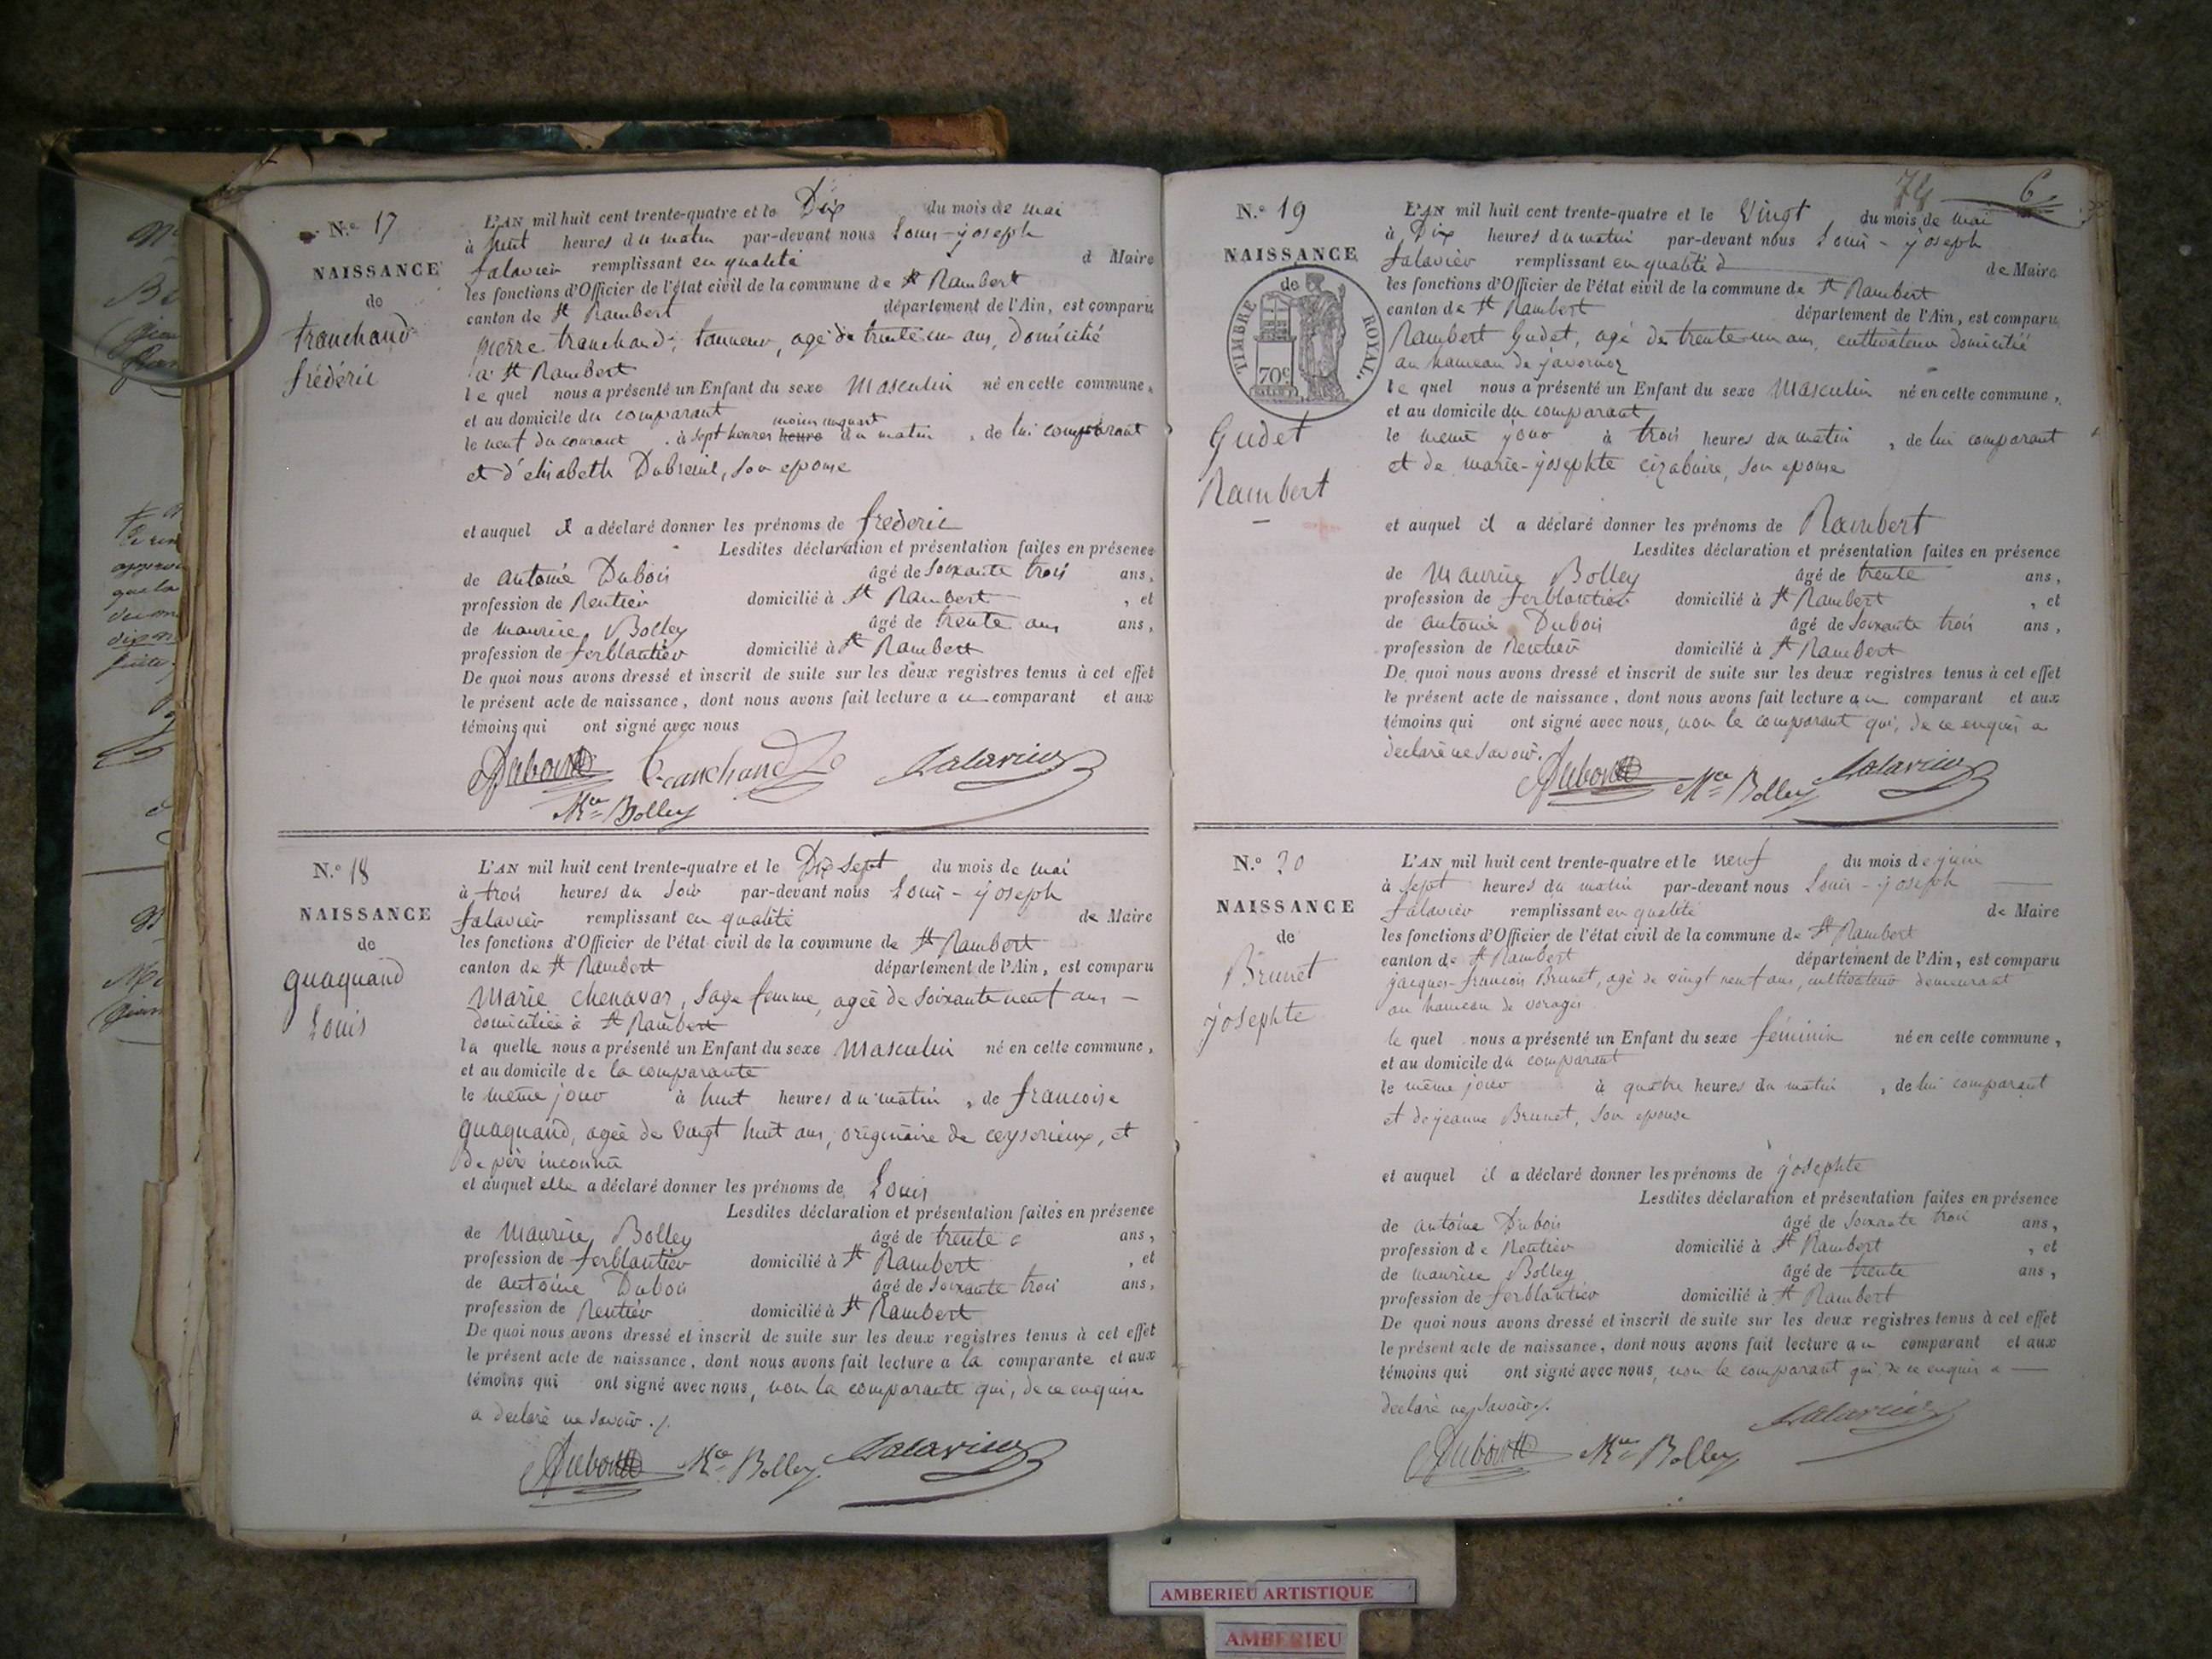 N.° 17
NAISSANCE
de
tranchand
frédéric
L'AN mil huit cent trente-quatre et le Dix du mois de mai
à huit heures du matin par-devant nous Louis-joseph
falavier remplissant en qualité d Maire
les fonctions d'Officier de l'état civil de la commune de St Rambert
canton de St Rambert département de l'Ain, est comparu
pierre tranchand, tanneur, agé de trente un ans, domicilié
à St Rambert
le quel nous a présenté un Enfant du sexe Masculin né en cette commune,
et au domicile du comparant
le neuf du courant, à sept heures heure moins unquart du matin, de lui comparant
et d'elisabeth Dubreuil, son epouse
et auquel il a déclaré donner les prénoms de frederic
Lesdites déclaration et présentation faites en présence
de antoine Dubois âgé de soixante trois ans,
profession de Rentier domicilié à St Rambert, et
de maurice Bolley âgé de trente ans ans,
profession de ferblantier domicilié à St Rambert
De quoi nous avons dressé et inscrit de suite sur les deux registres tenus à cet effet
le présent acte de naissance, dont nous avons fait lecture a u comparant et aux
témoins qui ont signé avec nous
Dubois Tranchand falavier
Mce Bolley
N.° 18
NAISSANCE
de
guaquand
Louis
L'AN mil huit cent trente-quatre et le Dix sept du mois de mai
à trois heures du soir par-devant nous Louis-joseph
falavier remplissant en qualité de Maire
les fonctions d'Officier de l'état civil de la commune de St Rambert
canton de St Rambert département de l'Ain, est comparu
Marie chenavar, sage femme, ageé de soixante neuf ans –
domiciliée à St Rambert
la quelle nous a présenté un Enfant du sexe Masculin né en cette commune,
et au domicile de la comparante
le même jour à huit heures du matin, de francoise
guaquand, ageé de vingt huit ans, originaire de ceyserieux, et
de père inconnu
et auquel elle a déclaré donner les prénoms de Louis
Lesdites déclaration et présentation faites en présence
de maurice Bolley âgé de trente ans,
profession de ferblantier domicilié à St Rambert, et
de antoine Dubois âgé de soixante trois ans,
profession de Rentier domicilié à St Rambert
De quoi nous avons dressé et inscrit de suite sur les deux registres tenus à cet effet
le présent acte de naissance, dont nous avons fait lecture a la comparante et aux
témoins qui ont signé avec nous, non la comparante qui, de ce enquise
a declaré ne savoir ./.
Dubois Mce Bolley falavier
74 6
N.° 19
NAISSANCE
de
TIMBRE ROYAL
70c
Gudet
Rambert
L'AN mil huit cent trente-quatre et le Vingt du mois de mai
à Dix heures du matin par-devant nous Louis-joseph
falavier remplissant en qualité d de Maire
les fonctions d'Officier de l'état civil de la commune de St Rambert
canton de St Rambert département de l'Ain, est comparu
Rambert Gudet, agé de trente un ans, cultivateur domicilié
au hameau de javornoz
le quel nous a présenté un Enfant du sexe Masculin né en cette commune,
et au domicile du comparant
le meme jour à trois heures du matin, de lui comparant
et de marie-josephte cizabuire, son epouse
et auquel il a déclaré donner les prénoms de Rambert
Lesdites déclaration et présentation faites en présence
de Maurice Bolley âgé de trente ans,
profession de ferblantier domicilié à St Rambert, et
de antoine Dubois âgé de soixante trois ans,
profession de Rentier domicilié à St Rambert
De quoi nous avons dressé et inscrit de suite sur les deux registres tenus à cet effet
le présent acte de naissance, dont nous avons fait lecture au comparant et aux
témoins qui ont signé avec nous, non le comparant qui, de ce enquis a
declaré ne savoir.
Dubois Mce Bolley falavier
N.° 20
NAISSANCE
de
Brunet
josephte
L'AN mil huit cent trente-quatre et le neuf du mois de juin
à sept heures du matin par-devant nous Louis-joseph
falavier remplissant en qualité de Maire
les fonctions d'Officier de l'état civil de la commune de St Rambert
canton de St Rambert département de l'Ain, est comparu
jacques-francois Brunet, agé de vingt neuf ans, cultivateur demeurant
au hameau de vorages
le quel nous a présenté un Enfant du sexe féminin né en cette commune,
et au domicile du comparant
le même jour à quatre heures du matin, de lui comparant
et de jeanne Brunet, son epouse
et auquel il a déclaré donner les prénoms de josephte
Lesdites déclaration et présentation faites en présence
de antoine Dubois âgé de soixante trois ans,
profession de Rentier domicilié à St Rambert, et
de maurice Bolley âgé de trente ans,
profession de ferblantier domicilié à St Rambert
De quoi nous avons dressé et inscrit de suite sur les deux registres tenus à cet effet
le présent acte de naissance, dont nous avons fait lecture au comparant et aux
témoins qui ont signé avec nous, non le comparant qui de ce enquis a
declaré ne savoir ./.
falavier
Dubois Mce Bolley
AMBERIEU ARTISTIQUE
AMBERIEU